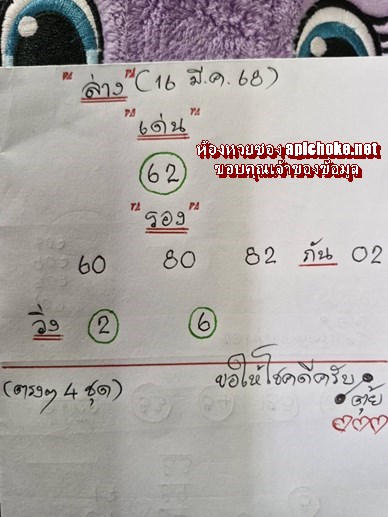 ล่าง (16 มี.ค. 68)
เด่น
ห้องหวยซอง apichoke.net
62
ขอบคุณเจ้าของข้อมูล
รอง
60 80 82 กัน 02
วิ่ง 2 6
(ตรงๆ 4 ชุด) ขอให้โชคดีครับ
ตุ้ย